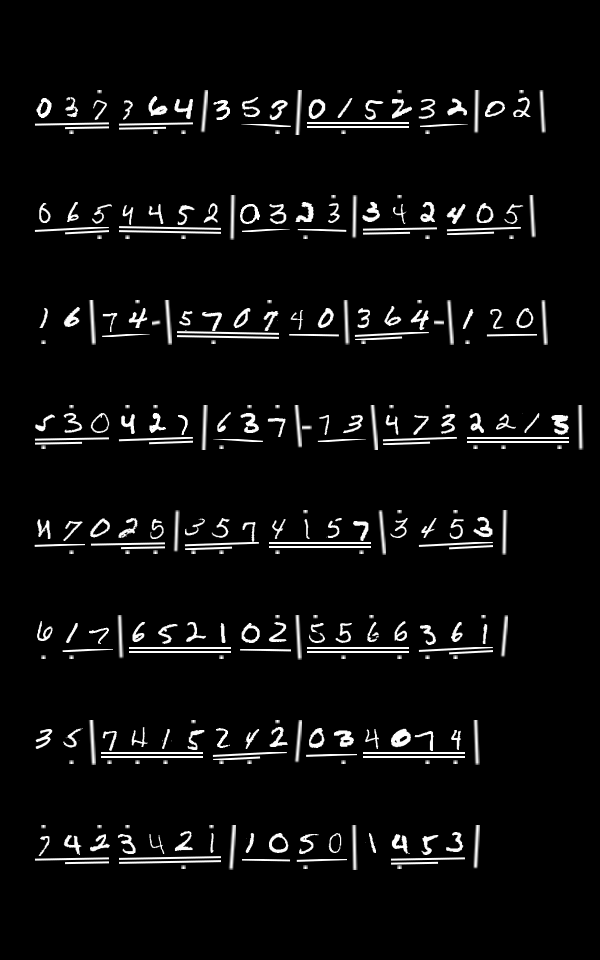 0 3 7 3 6 4 | 3 5 3 | 0 1 5 2 3 2 | 0 2 |
0 6 5 4 4 5 2 | 0 3 2 3 | 3 4 2 4 0 5 |
1 6 | 7 4 - | 5 7 0 7 4 0 | 3 6 4 - | 1 2 0 |
5 3 0 4 2 7 | 6 3 7 | - 7 3 | 4 7 3 2 2 1 5 |
4 7 0 2 5 | 3 5 7 4 1 5 7 | 3 4 5 3 |
6 1 7 | 6 5 2 1 0 2 | 5 5 6 6 3 6 1 |
3 5 | 7 4 1 5 2 4 2 | 0 3 4 0 7 4 |
7 4 2 3 4 2 1 | 1 0 5 0 | 1 4 5 3 |